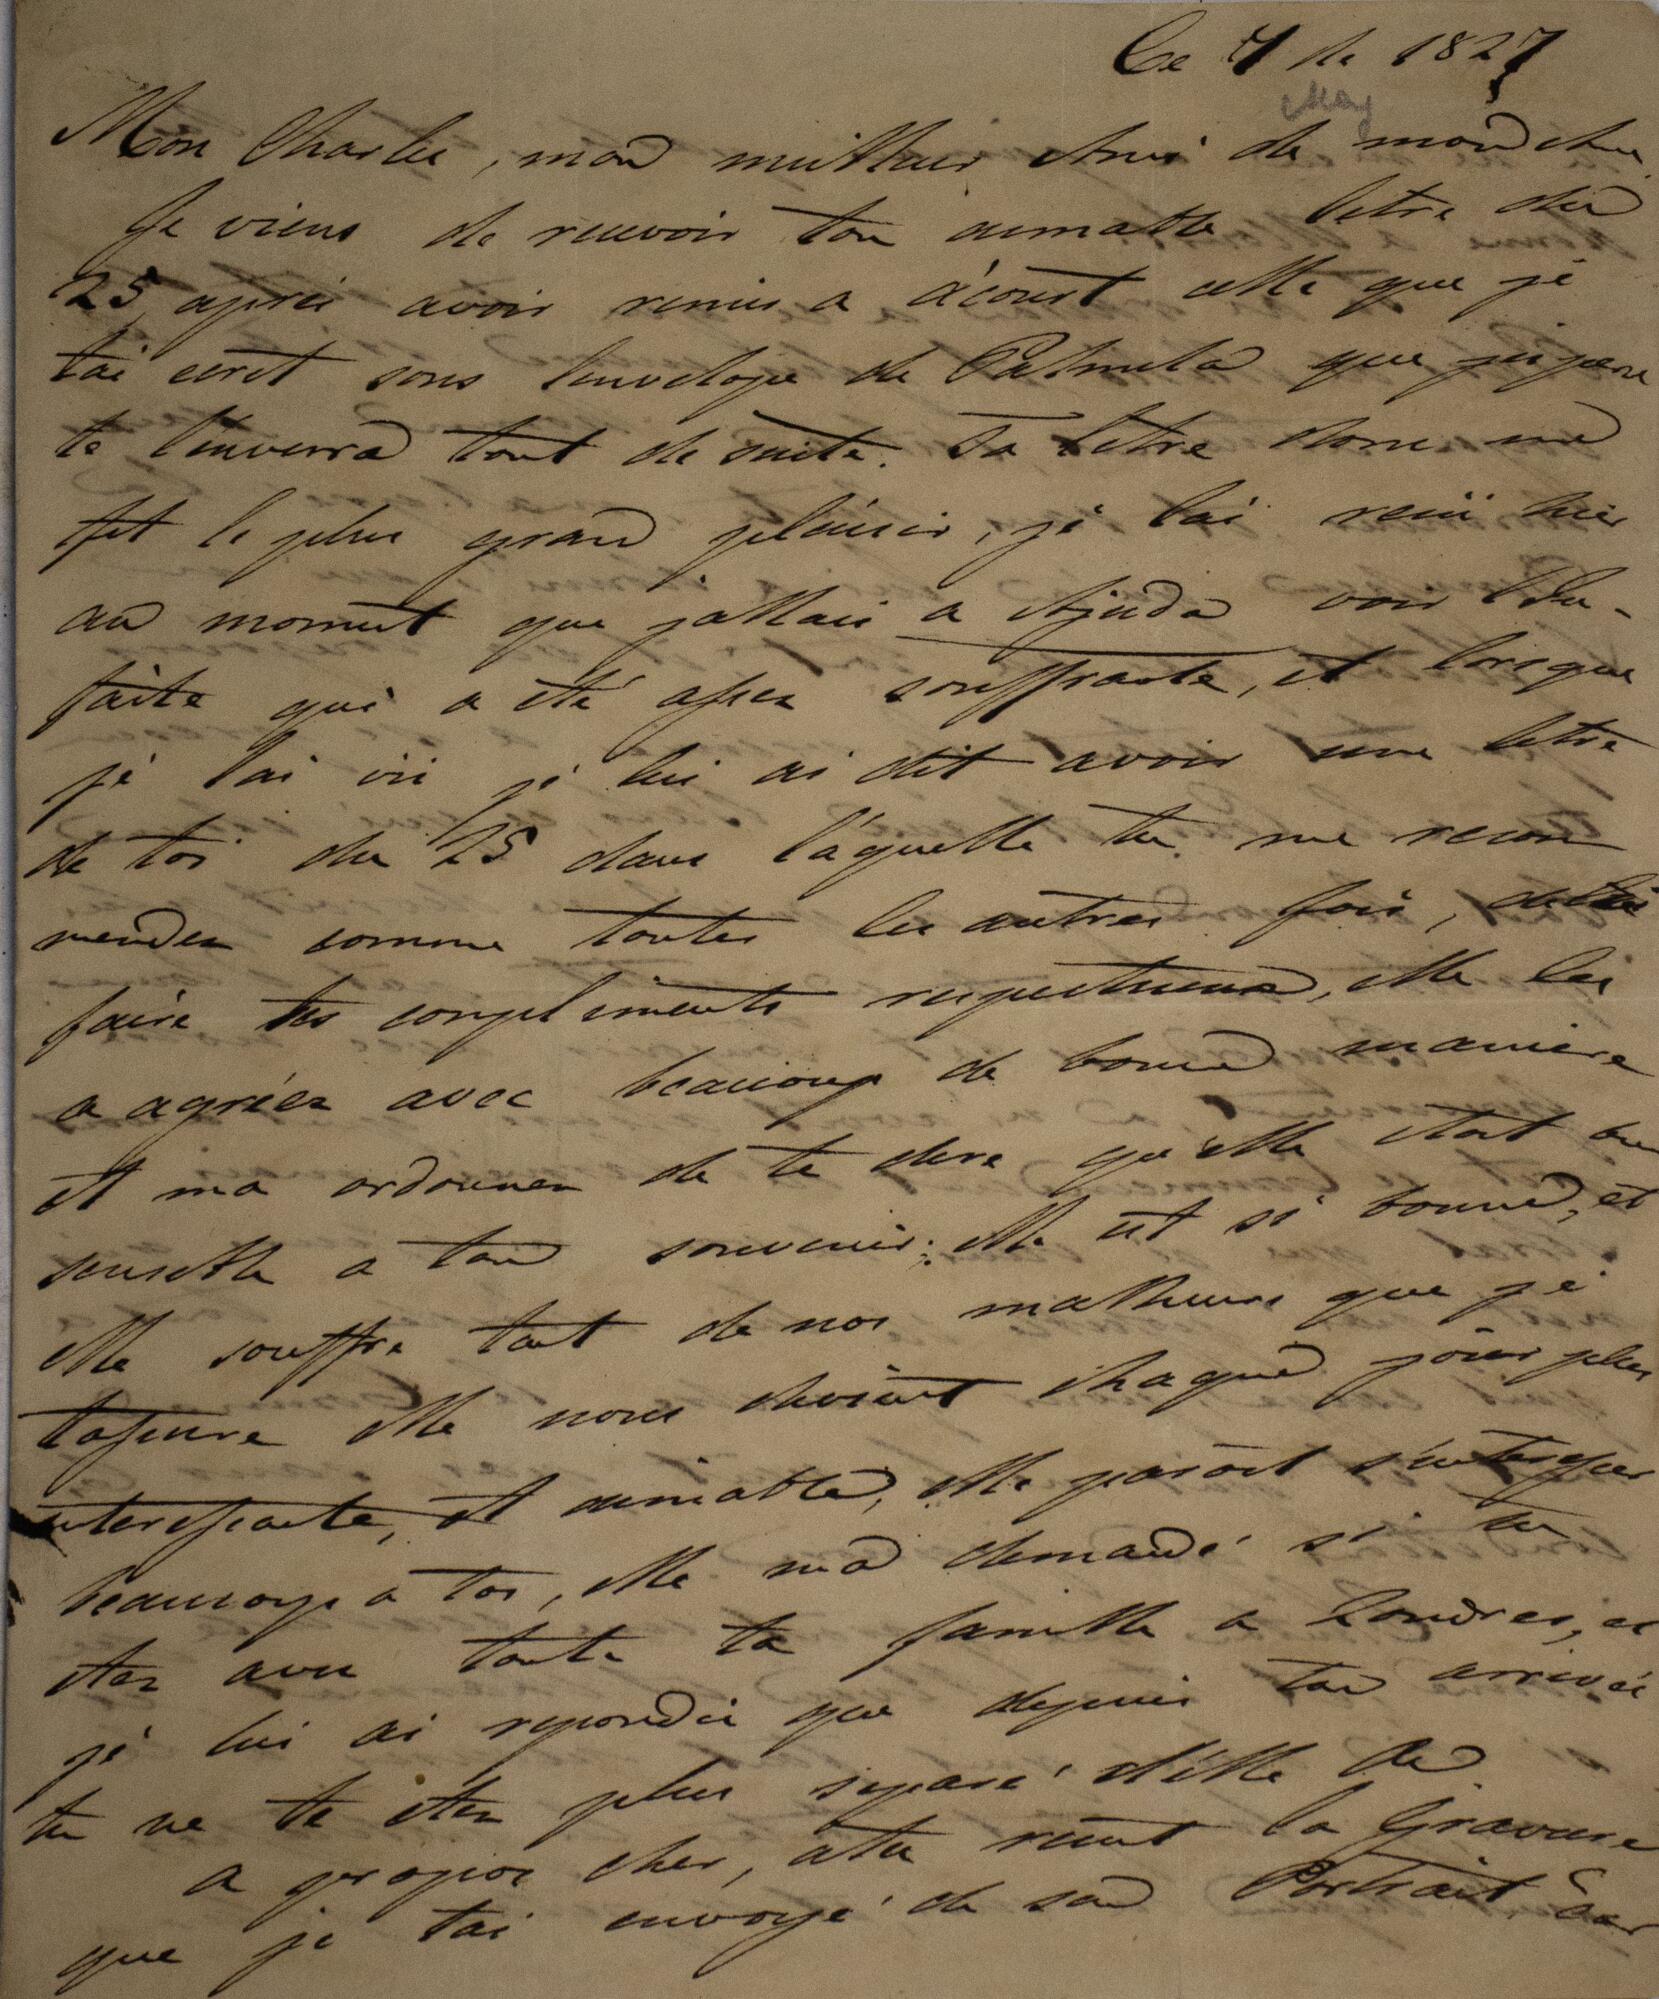 Ce 4 de 1827
May
Mon Charles, mon meilleur Ami de mon
Je viens de recevoir ton aimable letre du
25, après avoir remis a A'court celle que je
tai ecrit sous l'envelope de Palmela que j'espere
te l'enverra tout de suite. Ta letre donc me
fit le plus grand plaisir, je lai reçü hier
au moment que jallais a Ajuda voir l'In-
fante qui a été assez souffrante, et lorsque
je lai vü je lui ai dit avoir une letre
de toi du 25 dans láquelle tu me recom
mendez comme toutes les autres fois, de lui
faire tes compliments respectueux, elle les
a agréez avec beaucoup de bonne maniere
et ma ordonnez de te dire qu'elle etoit bien
sensible a ton souvenir; elle est si bonne, et
elle souffre tant de nos malheurs que je
tassure elle nous devient chaque jour plus
interessante, et aimable, elle paroit s'interesser
beaucoup a toi, elle m'a demandé si tu
etez avec toute ta famille a Londres, et
je lui ai repondu que depuis ton arrivée
tu ne te etez plus separé d'elle
a propos cher, atu reçut la Gravure
que je tai envoyé de son Portrait